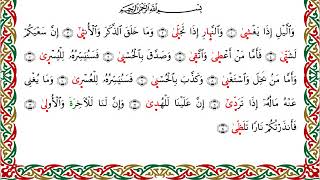 بِسْمِ اللَّهِ الرَّحْمَٰنِ الرَّحِيمِ
وَاللَّيْلِ إِذَا يَغْشَىٰ ۝ وَالنَّهَارِ إِذَا تَجَلَّىٰ ۝ وَمَا خَلَقَ الذَّكَرَ وَالْأُنثَىٰ ۝ إِنَّ سَعْيَكُمْ
لَشَتَّىٰ ۝ فَأَمَّا مَنْ أَعْطَىٰ وَاتَّقَىٰ ۝ وَصَدَّقَ بِالْحُسْنَىٰ ۝ فَسَنُيَسِّرُهُ لِلْيُسْرَىٰ ۝
وَأَمَّا مَنْ بَخِلَ وَاسْتَغْنَىٰ ۝ وَكَذَّبَ بِالْحُسْنَىٰ ۝ فَسَنُيَسِّرُهُ لِلْعُسْرَىٰ ۝ وَمَا يُغْنِي
عَنْهُ مَالُهُ إِذَا تَرَدَّىٰ ۝ إِنَّ عَلَيْنَا لَلْهُدَىٰ ۝ وَإِنَّ لَنَا لَلْآخِرَةَ وَالْأُولَىٰ ۝
فَأَنذَرْتُكُمْ نَارًا تَلَظَّىٰ ۝